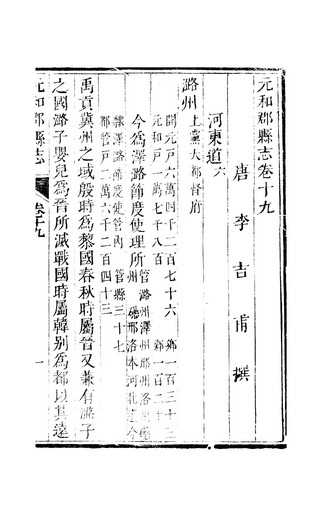 元和郡縣志卷十九
唐李吉甫撰
河東道六
潞州上黨大都督府
開元户六萬四千二百七十六 鄉一百三十
元和户一萬七千八百 鄉一百二十
今爲澤潞節度使理所
管潞州澤州邢州洺州磁
磁邢洺本河北道今
隸澤潞節度使管内 管縣三十七
都管户二萬六千二百四十三
禹貢冀州之域殷時爲黎國春秋時屬晉又兼有潞子
之國潞子嬰兒爲晉所滅戰國時屬韓别爲都以其遠
元和郡縣志
卷十九
一